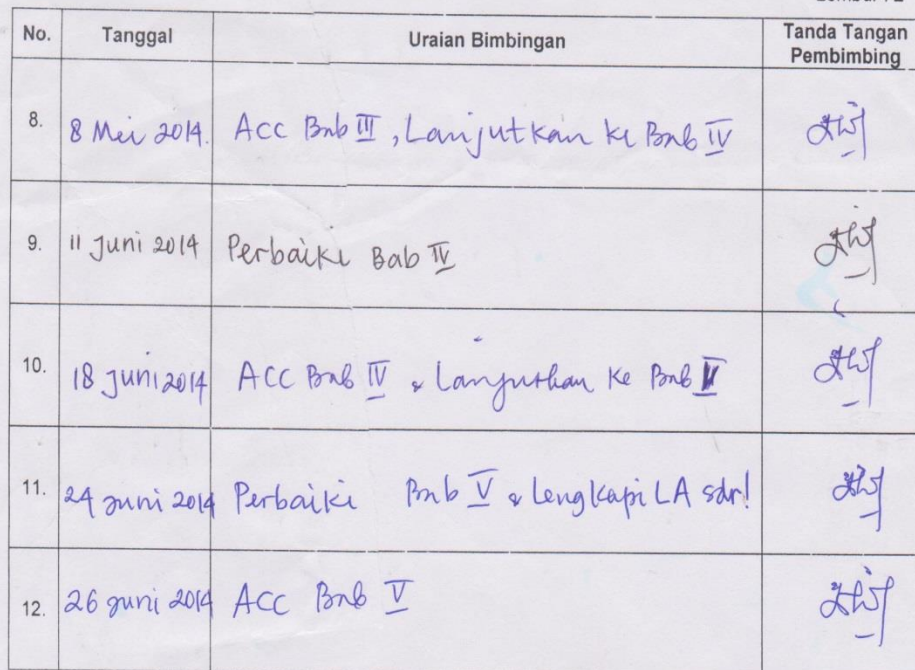 No. Tanggal Uraian Bimbingan Tanda Tangan Pembimbing
8. 8 Mei 2014. ACC Bab III, Lanjutkan ke Bab IV
9. 11 Juni 2014 Perbaiki Bab IV
10. 18 Juni 2014 ACC Bab IV & Lanjutkan ke Bab V
11. 24 Juni 2014 Perbaiki Bab V & Lengkapi LA sdr!
12. 26 Juni 2014 ACC Bab V